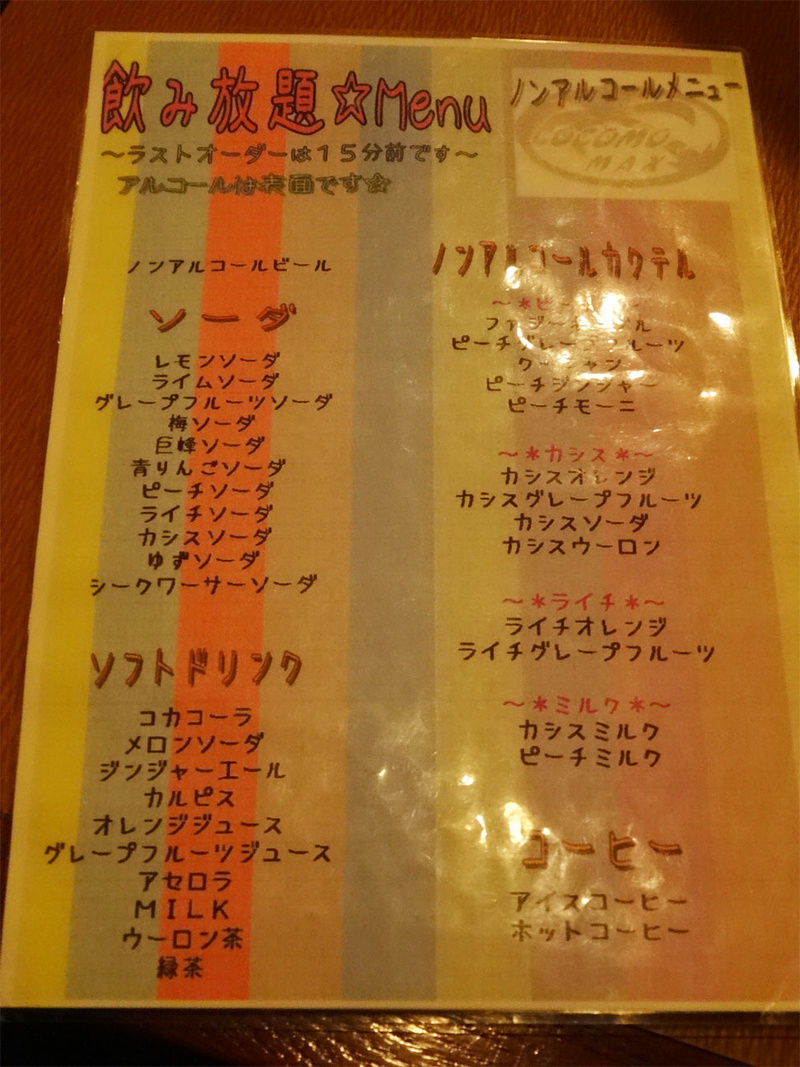 飲み放題☆Menu
～ラストオーダーは１５分前です～
アルコールは表面です☆
ノンアルコールメニュー
LOCOMO
MAX
ノンアルコールビール
ソーダ
レモンソーダ
ライムソーダ
グレープフルーツソーダ
梅ソーダ
巨峰ソーダ
青りんごソーダ
ピーチソーダ
ライチソーダ
カシスソーダ
ゆずソーダ
シークワーサーソーダ
ソフトドリンク
コカコーラ
メロンソーダ
ジンジャーエール
カルピス
オレンジジュース
グレープフルーツジュース
アセロラ
ＭＩＬＫ
ウーロン茶
緑茶
ノンアルコールカクテル
ピーチグレープフルーツ
ピーチジンジャー
ピーチモーニ
～＊カシス＊～
カシスオレンジ
カシスグレープフルーツ
カシスソーダ
カシスウーロン
～＊ライチ＊～
ライチオレンジ
ライチグレープフルーツ
～＊ミルク＊～
カシスミルク
ピーチミルク
コーヒー
アイスコーヒー
ホットコーヒー